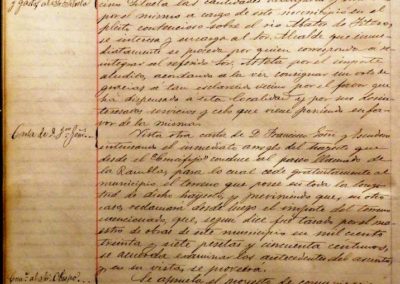 por el mismo a cargo de este Municipio en el
pleito contencioso sobre el rio
se interesa y su cargo al Sor. Alcalde que inme-
diatamente se provea por quien corresponda a re-
integrar al referido Sor. por el importe
aludido, acordando a la vez consignar un voto de
gracias a tan esclarecido vecino por el favor que
ha dispensado a esta localidad y por sus desin-
teresados servicios y celo que viene poniendo en fa-
vor de la misma.
Carta de D. Fco.
Vista otra carta de D. Francisco
interesando el inmediato arreglo del trayecto que
desde el conduce al paseo llamado de
la Rambla, para lo cual cede gratuitamente al
municipio el terreno que posee en toda la longi-
tud de dicho trayecto, y previniendo que, en otro
caso, reclamará desde luego el importe del terreno
mencionado, que, segun dice fue tasado por el ma-
estro de obras de este municipio en mil ciento
treinta y siete pesetas y cincuenta centimos,
se acuerda examinar los antecedentes del asunto,
y en su vista se proveerá.
al Sr. Obispo
Se aprueba el proyecto de